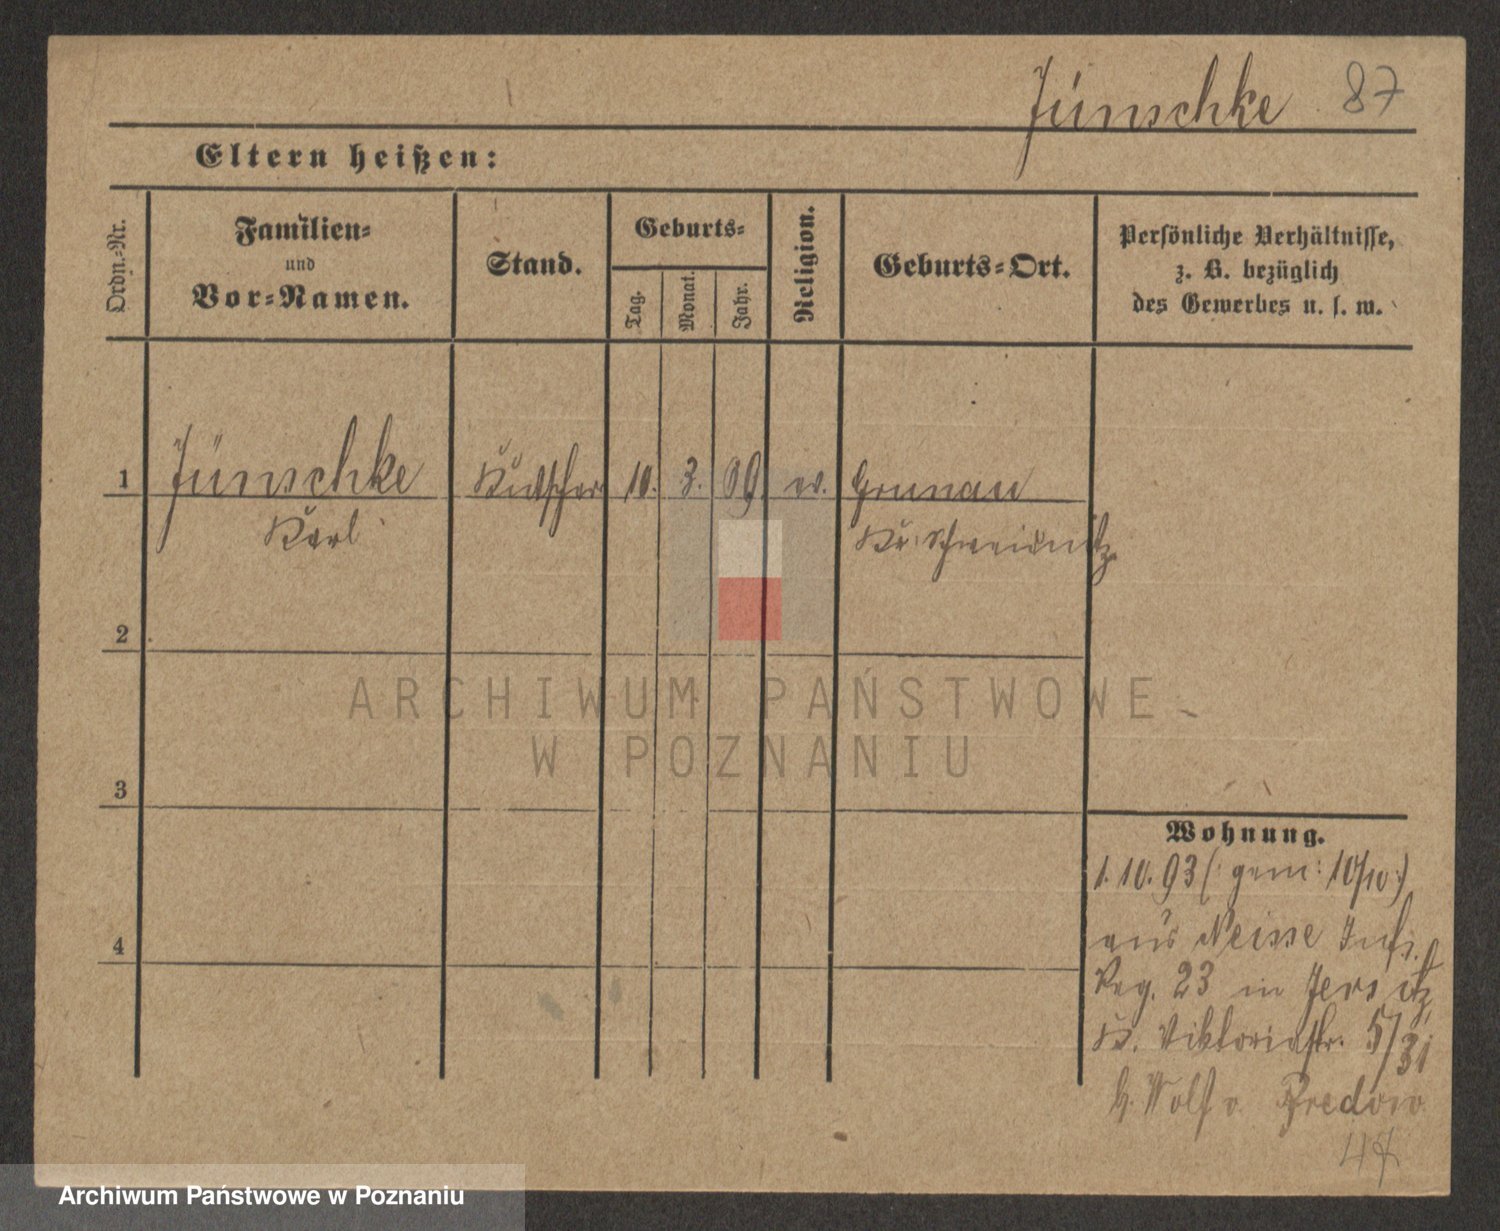 Jünschke 87
Eltern heißen:
Ordn.-Nr.
Familien-
und
Vor-Namen.
Stand.
Geburts-
Tag.
Monat.
Jahr.
Religion.
Geburts-Ort.
Persönliche Verhältnisse,
z. B. bezüglich
des Gewerbes u. s. w.
1 Jünschke Kutscher 10. 3. 69 ev. Grunau
Karl Kr. Schweidnitz
2
3
4
Wohnung.
1. 10. 93 (gem: 10/10.)
aus Neisse Inf.
Reg. 23 in Jersitz
K. Viktoriastr. 5/31
b. Wolf v. Bredow
47
ARCHIWUM PAŃSTWOWE
W POZNANIU
Archiwum Państwowe w Poznaniu